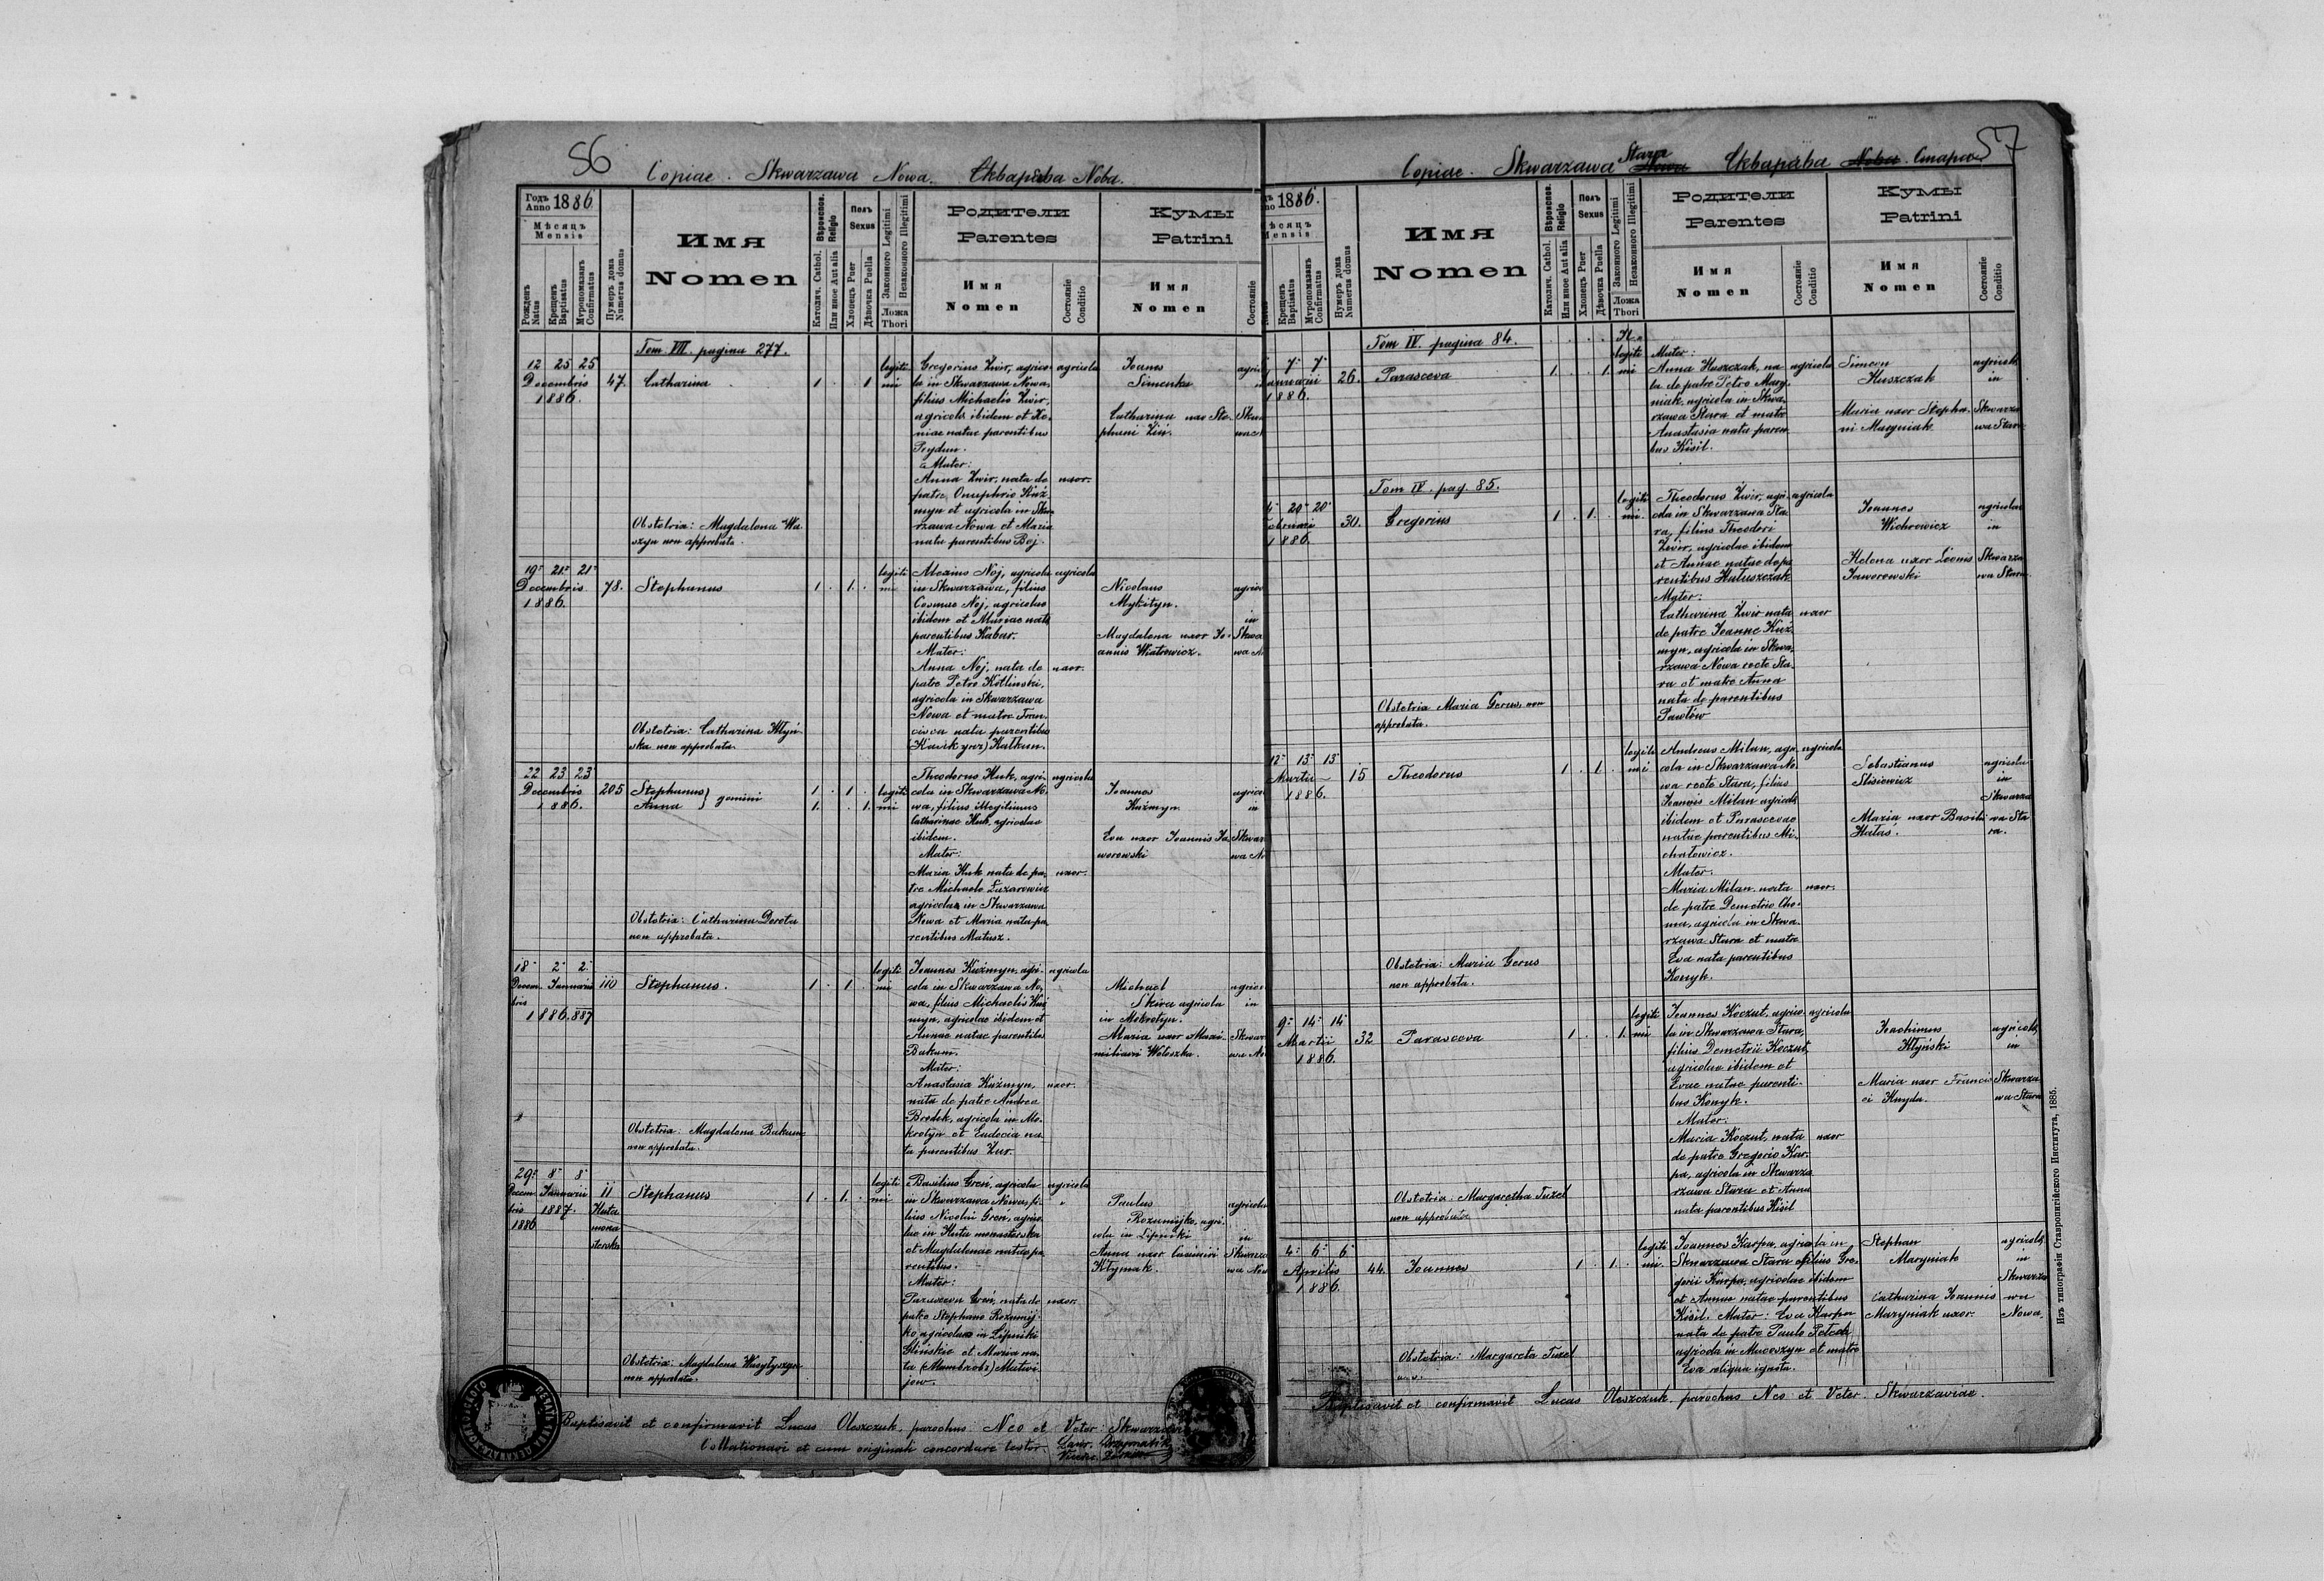 56
Copiae. Skwarzawa Nowa. Скварѣва Нова.
Годъ Anno 1886.
Мѣсяцъ
Mensis
Рожденъ Natus
Крещенъ Baptisatus
Муропомазанъ Confirmatus
Нумеръ дома Numerus domus
Имя
Nomen
Вѣроиспов. Religio
Католич. Cathol.
Или иное Aut alia
Полъ
Sexus
Хлопецъ Puer
Дѣвочка Puella
Законного Legitimi
Незаконного Illegitimi
Ложа
Thori
Родители
Parentes
Имя
Nomen
Состояніе
Conditio
Кумы
Patrini
Имя
Nomen
Состояніе
Tom VII. pagina 277.
12 25 25
Decembris
1886.
47.
Catharina
1 . . 1
legiti
mi
Gregorius Zwir, agrico-
la in Skwarzawa Nowa,
filius Michaelis Zwir,
agricola ibidem et Xe-
niae natae parentibus
Prydun.
Mater:
Anna Zwir, nata de
patre Onuphrio Kuź
myn et agricola in Skwa
rzawa Nowa et Maria
nata parentibus Boj.
agricola
uxor.
Ioannes
Simenko
Catharina uxor Ste-
phani Ziń.
Obstetrix: Magdalena Wa-
szyn non approbata.
19. 21. 21.
Decembris
1886.
78.
Stephanus
1 . 1 .
legiti
mi
Alexius Noj, agricola
in Skwarzawa, filius
Cosmae Noj, agricolae
ibidem et Mariae nata
parentibus Kabar.
Mater:
Anna Noj, nata de
patre Petro Kotlinski,
agricola in Skwarzawa
Nowa et matre Fran-
cisca nata parentibus
Katkun.
agricola
uxor.
Nicolaus
Mykityn.
Magdalena uxor Io-
annis Wiatrowicz.
Obstetrix: Catharina Kłyń-
ska non approbata.
22 23 23
Decembris
1886.
205
Stephanus
Anna } gemini
1 . 1 .
1 . . 1.
legiti
mi
Theodorus Huk, agri-
cola in Skwarzawa No-
wa, filius illegitimus
Catharinae Huk, agricolae
ibidem.
Mater:
Maria Huk nata de pa-
tre Michaele Łazarowicz
agricola in Skwarzawa
Nowa et Maria nata pa-
rentibus Matusz.
agricola
uxor.
Ioannes
Kuźmyn
Eva uxor Ioannis Ja-
worowski
Obstetrix: Catharina Dereta
non approbata.
18. 2. 2.
Decem- Ianuarii
bris
1886. 887
110
Stephanus.
1 . 1 .
legiti
mi
Ioannes Kuźmyn, agri-
cola in Skwarzawa No-
wa, filius Michaelis Kuź
myn, agricolae ibidem et
Annae natae parentibus
Bakum.
Mater:
Anastasia Kuźmyn,
nata de patre Andrea
Brodek, agricola in Mo-
krotyn et Eudocia na-
ta parentibus Zur.
agricola
uxor.
Michael
Skira agricola
in Mokrotyn.
Maria uxor Maxi-
miliani Woloszka.
Obstetrix: Magdalena Bakum
non approbata.
29. 8. 8.
Decem- Ianuarii
bris 1887.
1886
11
Huta
mona
sterska
Stephanus
1 . 1 .
legiti
mi
Basilius Greń, agricola
in Skwarzawa Nowa, fi-
lius Nicolai Greń, agrico-
lae in Huta monasterska
et Magdalenae natae pa-
rentibus.
Mater:
Parasceva Greń, nata de
patre Stephano Rozumij-
ko, agricola in Lipniki
Glińskie et Maria na-
ta Matwi-
jow.
agricola
uxor.
Paulus
Rozumijko, agri-
cola in Lipniki
Anna uxor Casimiri
Kłymak.
Obstetrix: Magdalena Wasyłyszyn
non approbata.
Baptisavit et confirmavit Lucas Oleszczuk, parochus Neo et Veter: Skwarzaviae
Collationavi et cum originali concordare testor.
57
Copiae. Skwarzawa Stara Nowa Скварѣва Нова Стара
1886.
Крещенъ Baptisatus
Муропомазанъ Confirmatus
Нумеръ дома Numerus domus
Имя
Nomen
Вѣроиспов. Religio
Католич. Cathol.
Или иное Aut alia
Полъ
Sexus
Хлопецъ Puer
Дѣвочка Puella
Законного Legitimi
Незаконного Illegitimi
Ложа
Thori
Родители
Parentes
Имя
Nomen
Состояніе
Conditio
Кумы
Patrini
Имя
Nomen
Состояніе
Conditio
Tom IV. pagina 84.
7. 7.
1886.
26.
Parasceva
1 . . 1.
Il-
legiti
mi
Mater:
Anna Huszczak, na
ta de patre Petro Mary-
niak, agricola in Skwa-
rzawa Stara et matre
Anastasia nata paren
bus Kisil.
agricola
Simeon
Huszczak
Maria uxor Stepha-
ni Maryniak
agricola
in
Skwarza
wa Stara
Tom IV. pag. 85.
20 20
1886.
30.
Gregorius
1 . 1 .
legiti
mi.
Theodorus Zwir, agri-
cola in Skwarzawa Sta-
ra, filius Theodori
Zwir, agricolae ibidem
et Annae natae de pa-
rentibus Hałuszczak
Mater:
Catharina Zwir nata
de patre Ioanne Kuź
myn, agricola in Skwa-
rzawa Nowa recte Sta-
ra et matre Anna
nata de parentibus
Pawlów
agricola
uxor
Ioannes
Wichrowicz
Helena uxor Leonis
Jaworowski
agricolae
in
Skwarza
wa Stara
Obstetrix Maria Gerus, non
approbata.
12. 13. 13.
Martii
1886.
15
Theodorus
1 . 1 .
legiti
mi
Andreas Milan, agri-
cola in Skwarzawa No-
wa recte Stara, filius
Ioannis Milan agricolae
ibidem et Parascevae
natae parentibus Mi-
chałowicz.
Mater:
Maria Milan, nata
de patre Demetrio Cho-
ma, agricola in Skwa-
rzawa Stara et matre
Eva nata parentibus
Konyk.
agricola
uxor.
Sebastianus
Stisiewicz
Maria uxor Basilii
Hałas.
agricolae
in
Skwarza
wa Sta
ra.
Obstetrix: Maria Gerus
non approbata.
9. 14. 14
Martii
1886.
32
Parasceva
1 . . 1.
legiti
mi
Ioannes Koczut, agrico-
la in Skwarzawa Stara,
filius Demetrii Koczut,
agricolae ibidem et
Evae natae parenti-
bus Konyk.
Mater:
Maria Koczut, nata
de patre Gregorio Kar-
pa, agricola in Skwarza
rzawa Stara et Anna
nata parentibus Kisil
agricola
uxor
Ioachimus
Kłyński
Maria uxor Francis
ci Knyda.
agricola,
in
Skwarza
wa Stara
Obstetrix: Margaretha Tuzel
non approbata
4. 6. 6.
Aprilis
1886.
44.
Ioannes
1 . 1 .
legiti
mi.
Ioannes Karpa, agricola in
Skwarzawa Stara filius Gre-
gorii Karpa, agricolae ibidem
et Annae natae parentibus
Kisil. Mater: Eva Karpa
nata de patre Paulo
agricola in Macoszyn et matre
Eva reliqua ignota.
Stephan
Maryniak
Catharina Ioannis
Maryniak uxor.
agricola,
in
Skwarza
wa
Nowa.
Obstetrix: Margareta Tuzel
Baptisavit et confirmavit Lucas Oleszczuk, parochus Neo et Veter. Skwarzaviae.
Изъ типографіи Ставропигійского Института, 1885.